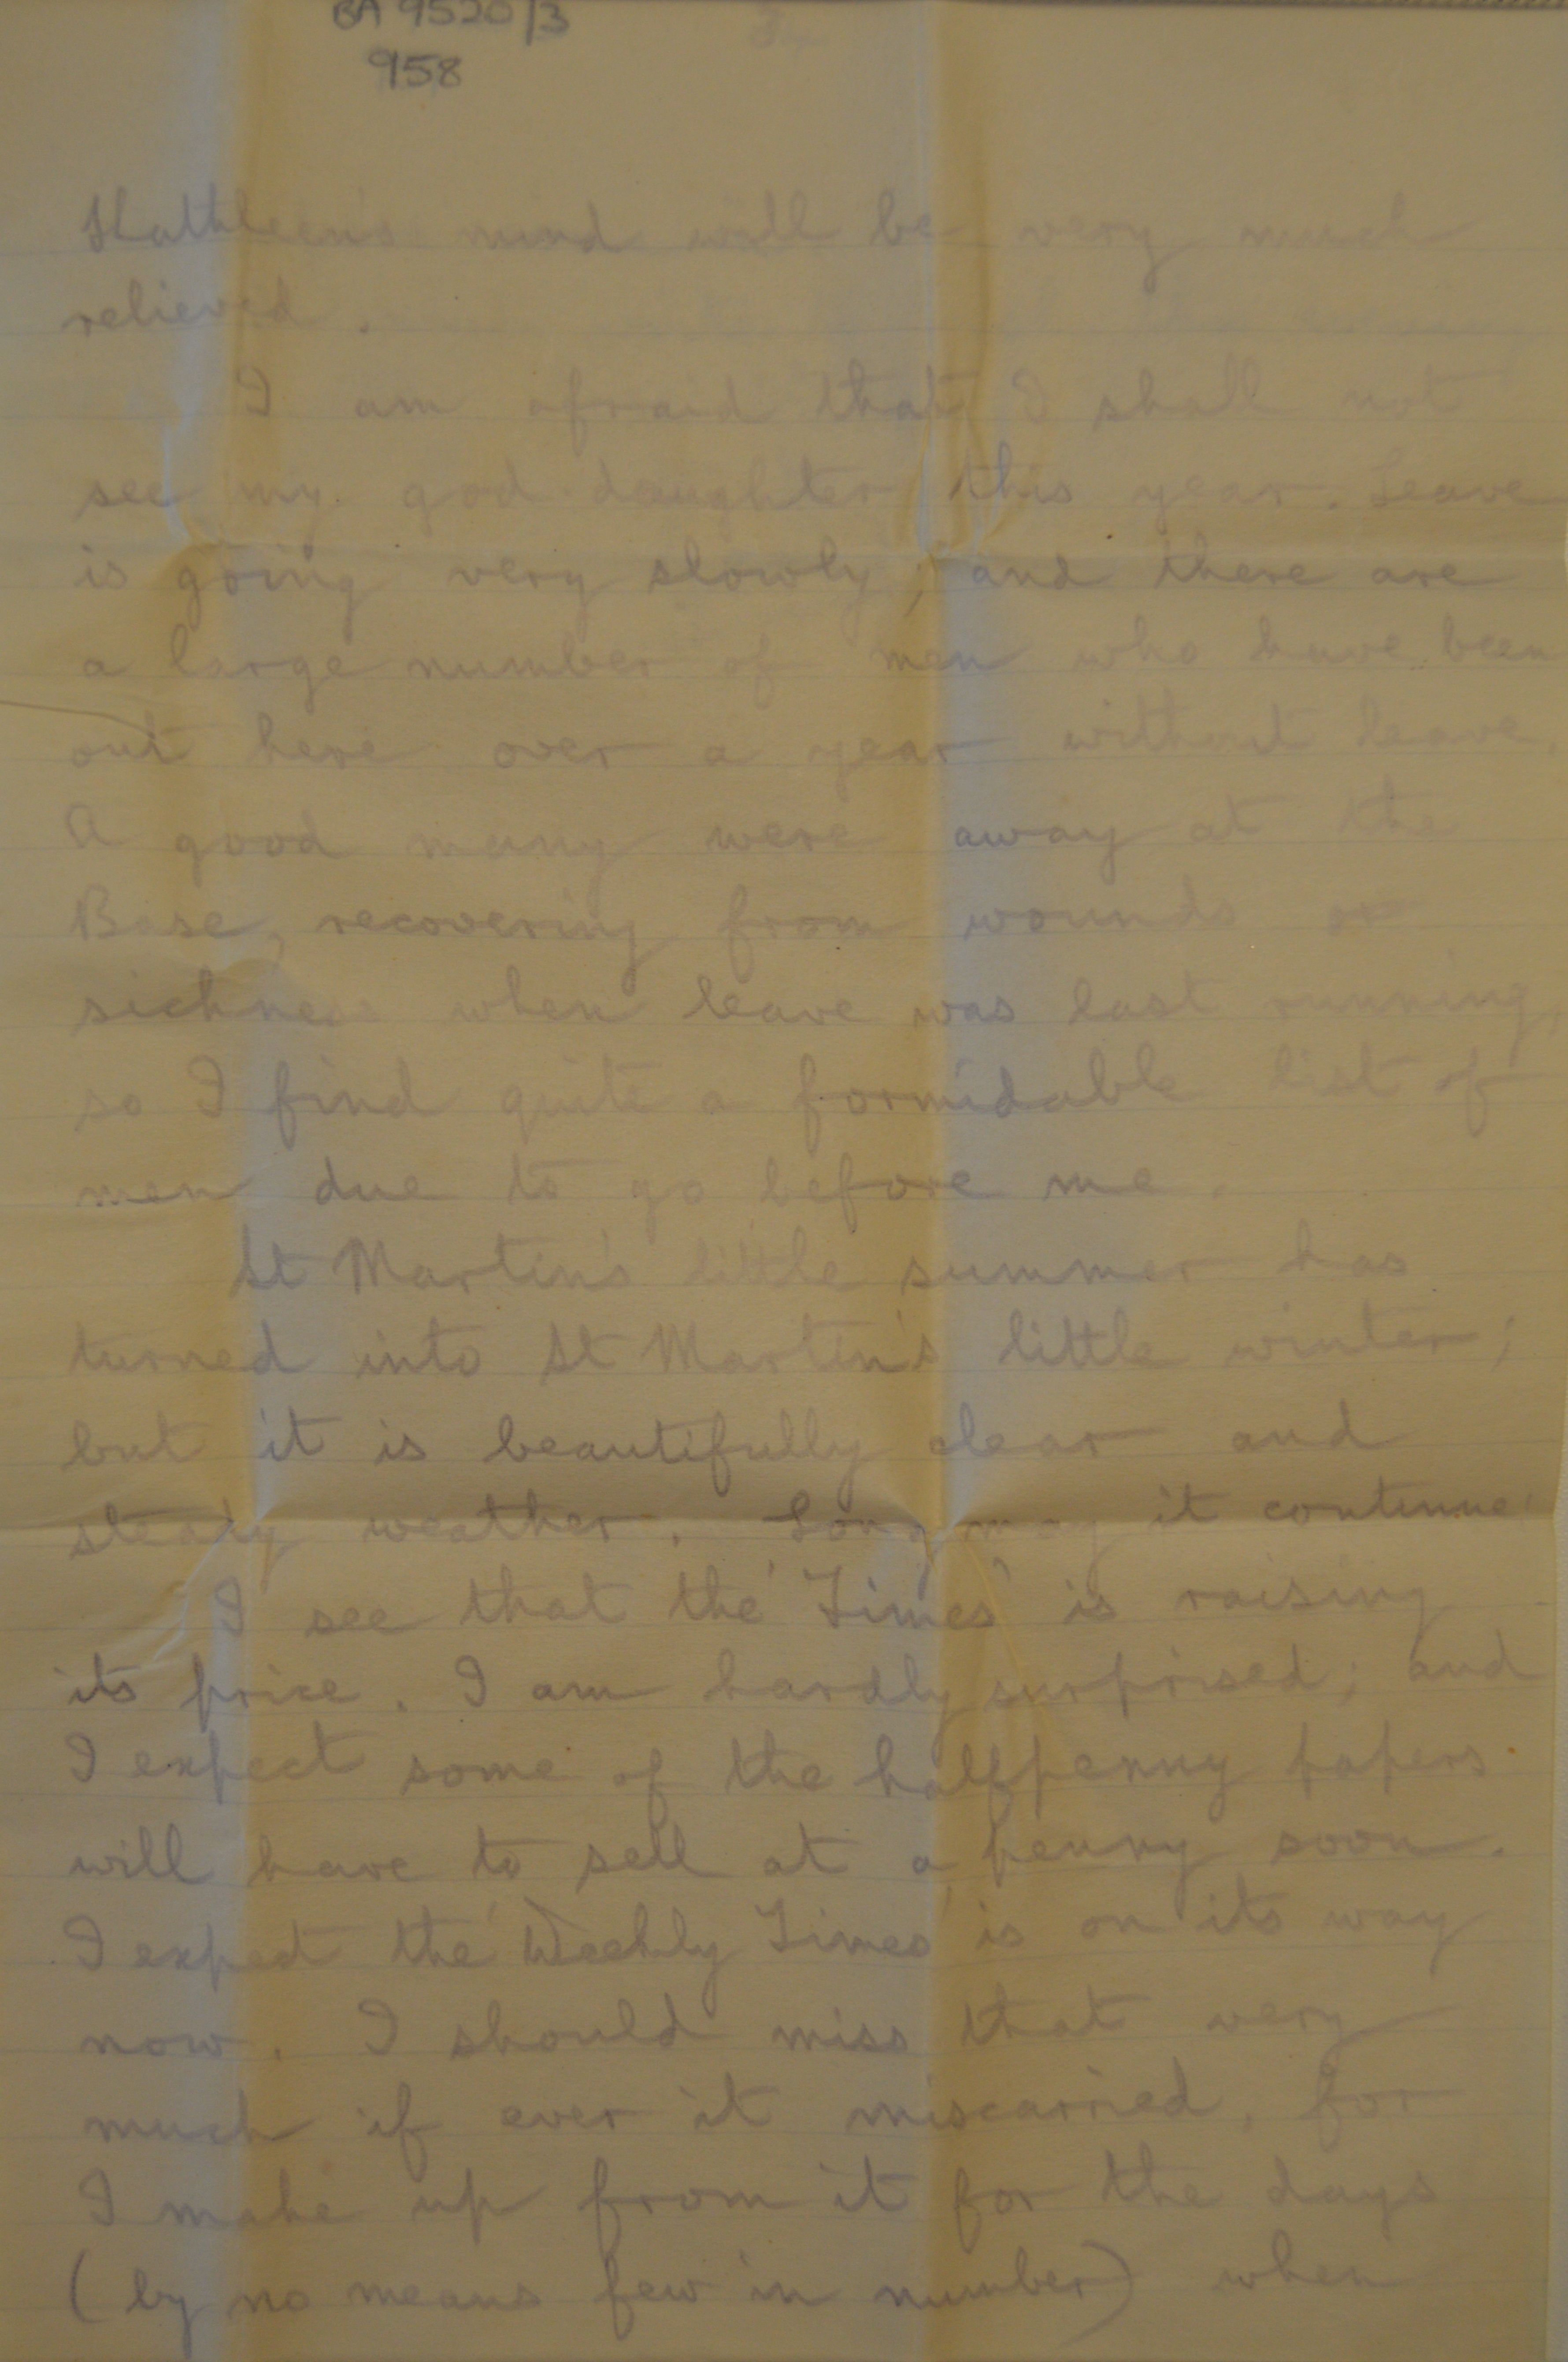 BA 9520/3
958
Kathleen's mind will be very much
relieved.
I am afraid that I shall not
see my god-daughter this year. Leave
is going very slowly; and there are
a large number of men who have been
out here over a year without leave.
A good many were away at the
Base, recovering from wounds or
sickness when leave was last running,
so I find quite a formidable list of
men due to go before me.
St Martin's little summer has
turned into St Martin's little winter;
but it is beautifully clear and
steady weather. Long may it continue!
I see that the 'Times' is raising
its price. I am hardly surprised; and
I expect some of the halfpenny papers
will have to sell at a penny soon.
I expect the 'Weekly Times' is on its way
now. I should miss that very
much if ever it miscarried, for
I make up from it for the days
(by no means few in number) when